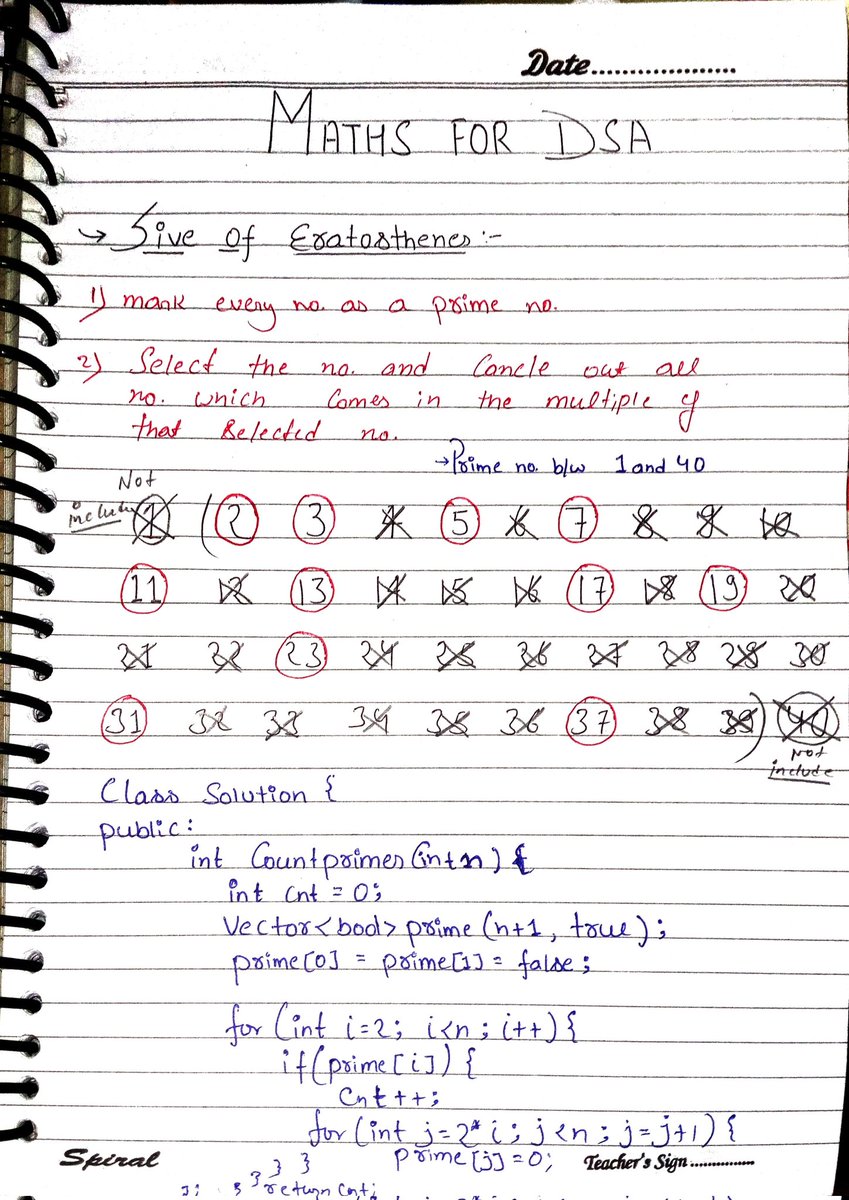 Date....................
MATHS FOR DSA
→ Sive of Eratosthenes :-
1) mark every no. as a prime no.
2) Select the no. and Cancle out all
no. which comes in the multiple of
that selected no.
→Prime no. b/w 1 and 40
Not
include
1 (2 3 4 5 6 7 8 9 10
11 12 13 14 15 16 17 18 19 20
21 22 23 24 25 26 27 28 29 30
31 32 33 34 35 36 37 38 39) 40
Not
include
Class Solution {
public:
int Countprimes(int n) {
int cnt = 0;
Vector<bool> prime (n+1, true);
prime[0] = prime[1] = false;
for (int i=2; i<n; i++) {
if(prime[i]) {
Cnt++;
for (int j=2*i; j<n; j=j+1) {
prime[j]=0;
} }
} return cnt;
Spiral
Teacher's Sign ...............